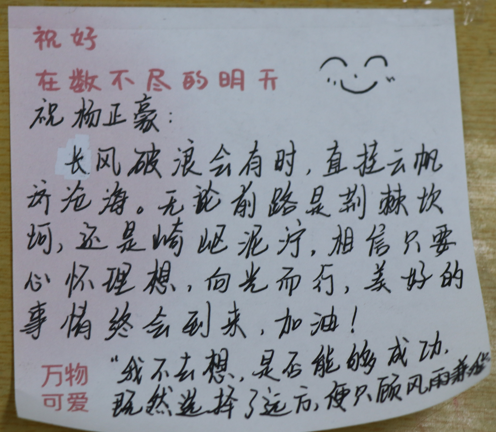 祝好
在数不尽的明天
祝杨正豪：
长风破浪会有时，直挂云帆
济沧海。无论前路是荆棘坎
坷，还是崎岖泥泞，相信只要
心怀理想，向光而行，美好的
事情终会到来，加油！
万物
可爱
“我不去想，是否能够成功，
既然选择了远方，便只顾风雨兼程